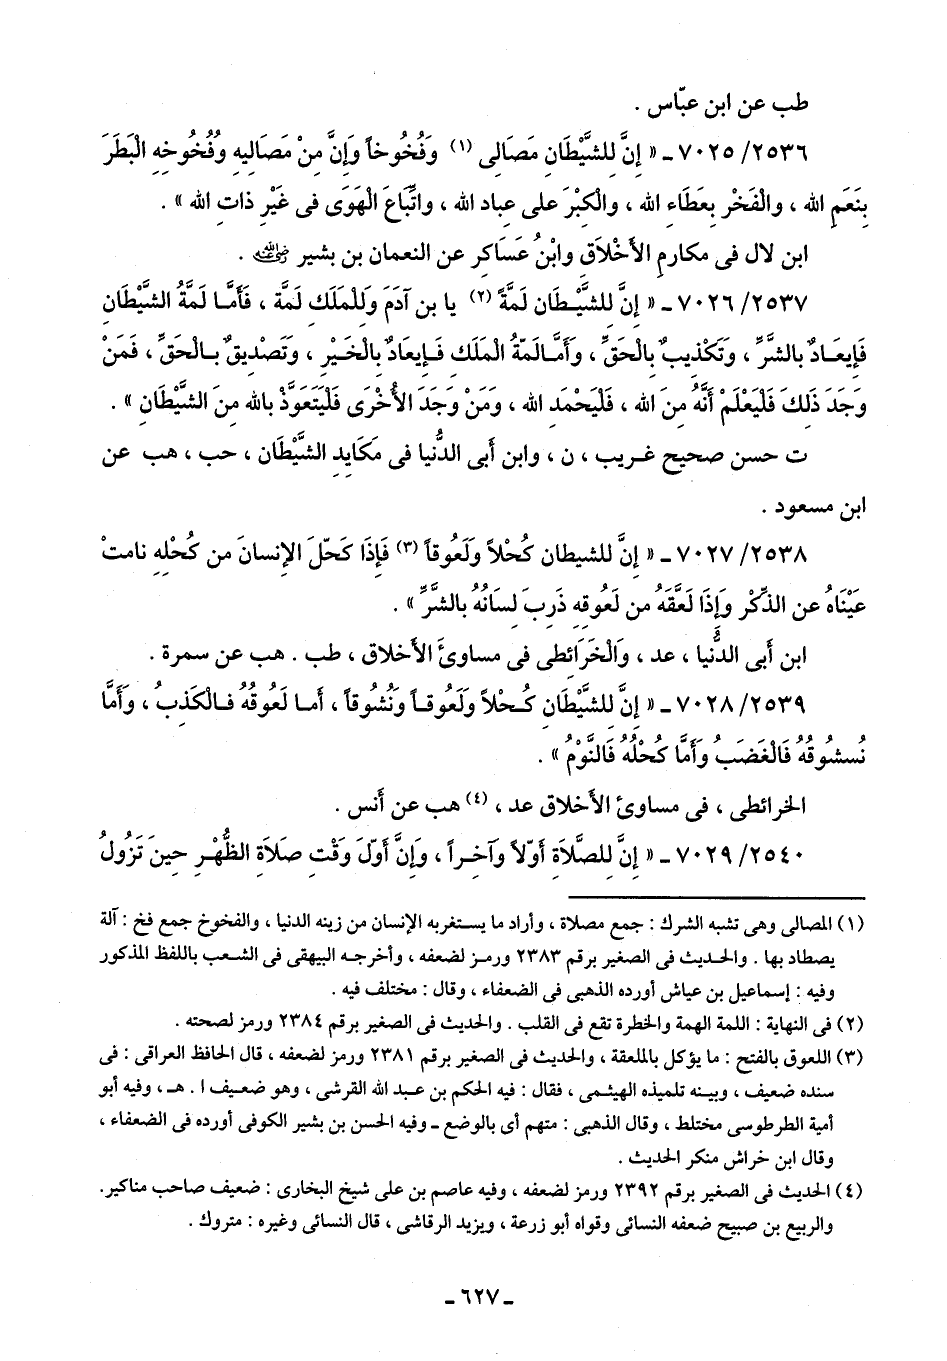 طب عن ابن عبّاس .
٢٥٣٦/ ٧٠٢٥ ـ « إِنَّ للشَّيْطَانِ مَصَالى (١) وَفُخُوخاً وَإِنَّ مِنْ مَصَاليهِ وفُخُوخِهِ الْبَطَرَ
بِنَعَمِ الله ، والْفَخْرَ بعَطَاءِ الله ، والْكِبْرَ على عِبادِ الله ، واتِّبَاعَ الْهَوَى فى غَيْرِ ذاتِ الله » .
ابن لال فى مكارمِ الأَخْلَاقِ وابْنُ عَسَاكر عن النعمان بن بشير رضي الله عنه .
٢٥٣٧/ ٧٠٢٦ ـ « إِنَّ للشَّيْطَانِ لمَةً (٢) يا بن آدَمَ وَللْمَلَكِ لمَّة ، فَأمَّا لمَّةُ الشَّيْطَانِ
فَإِيعَادٌ بالشَّرِّ ، وَتَكْذِيبٌ بالْحَقِّ ، وَأَمَّالَمّةُ الْمَلَكِ فَإِيعَادٌ بالْخَيْرِ ، وَتَصْدِيقٌ بالْحَقِّ ، فَمَنْ
وَجَدَ ذَلكَ فَلْيَعْلَمْ أَنَّهُ مِنَ الله ، فَلْيَحْمَدِ الله ، وَمَنْ وَجَدَ الأُخْرَى فَلْيَتَعَوَّذْ بالله مِنَ الشَّيْطَانِ » .
ت حسن صحيح غريب ، ن ، وابن أبى الدُّنيا فى مكايِد الشَّيْطَان ، حب ، هب عن
ابن مسعود .
٢٥٣٨/ ٧٠٢٧ ـ « إِنَّ للشيطان كُحْلاً وَلَعُوقاً (٣) فَإِذَا كَحّلَ الإنسانَ من كُحْلِهِ نامتْ
عَيْنَاهُ عن الذِّكْرِ وَإِذَا لَعَّقَهُ من لَعُوقِهِ ذَرِبَ لِسَانُهُ بالشَّرِّ » .
ابن أبى الدُّنيا ، عد ، وَالْخَرَائطى فى مساوئَ الأخلاق ، طب . هب عن سمرة .
٢٥٣٩/ ٧٠٢٨ ـ « إِنَّ للشَّيْطَانِ كُحْلاً وَلَعُوقاً ونُشُوقاً ، أما لَعُوقُهُ فالْكَذبُ ، وَأَمَّا
نُسشُوقُهُ فَالْغَضَبُ وَأَمَّا كُحْلُهُ فَالنَّوْمُ » .
الخرائطى ، فى مساوئ الأخلاق عد ، (٤) هب عن أنس .
٢٥٤٠/ ٧٠٢٩ ـ « إِنَّ للصَّلَاةِ أَوَّلاً وآخِراً ، وَإِنَّ أَوّلَ وَقْتِ صلَاةِ الظُّهْرِ حينَ تَزُولُ
(١) المصالى وهى تشبه الشرك : جمع مصلاة ، وأراد ما يستغربه الإنسان من زينه الدنيا ، والفخوخ جمع فخ : آلة
يصطاد بها . والحديث فى الصغير برقم ٢٣٨٣ ورمز لضعفه ، وأخرجه البيهقى فى الشعب باللفظ المذكور
وفيه : إسماعيل بن عياش أورده الذهبى فى الضعفاء ، وقال : مختلف فيه .
(٢) فى النهاية : اللمة الهمة والخطرة تقع فى القلب . والحديث فى الصغير برقم ٢٣٨٤ ورمز لصحته .
(٣) اللعوق بالفتح : ما يؤكل بالملعقة ، والحديث فى الصغير برقم ٢٣٨١ ورمز لضعفه ، قال الحافظ العراقى : فى
سنده ضعيف ، وبينه تلميذه الهيثمى ، فقال : فيه الحكم بن عبد الله القرشى ، وهو ضعيف ا . هـ ، وفيه أبو
أمية الطرطوسى مختلط ، وقال الذهبى : متهم أى بالوضع ـ وفيه الحسن بن بشير الكوفى أورده فى الضعفاء ،
وقال ابن خراش منكر الحديث .
(٤) الحديث فى الصغير برقم ٢٣٩٢ ورمز لضعفه ، وفيه عاصم بن على شيخ البخارى : ضعيف صاحب مناكير.
والربيع بن صبيح ضعفه النسائى وقواه أبو زرعة ، ويزيد الرقاشى ، قال النسائى وغيره : متروك .
ـ ٦٢٧ ـ